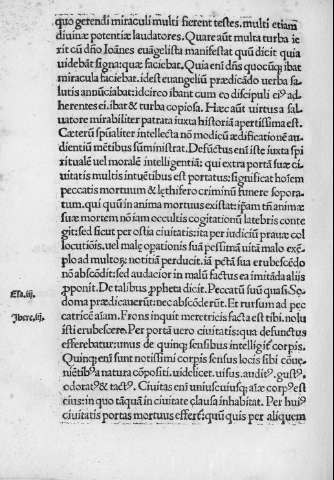 quo gerendi miraculi multi fierent testes. multi etiam
diuinæ potentiæ laudatores. Quare aūt multa turba ie
rit cū dño Ioānes euāgelista manifestat quū dicit quia
uidebāt signa: quæ faciebat. Quia eni dñs quocūq; ibat
miracula faciebat. id est euangeliū prædicādo turba sa
lutis annūciabat: idcirco ibant cum eo discipuli ei⁹ ad
herentes ei. ibat & turba copiosa. Hæc aūt uirtus a sal
uatore mirabiliter patrata iuxta historiā apertissima est.
Cæterū spūaliter intellecta nō modicū ædificationē au
dientiū mētibus sūministrat. Defūctus eni iste iuxta spi
ritualē uel moralē intelligentiā: qui extra portā suæ ci
uitatis multis intuētibus est portatus: significat hoiem
peccatis mortuum & lęthifero criminū funere sopora⸗
tum. qui quū in anima mortuus existat: ipsam tñ animæ
suæ mortem nō iam occultis cogitationū latebris conte
git: sed sicut per ostia ciuitatis: ita per iudiciū prauæ col
locutiōis. uel malę opationis suā pessimā uitā malo exē⸗
plo ad multorȝ notitiā perducit. iā pctā sua erubescēdo
nō abscōdit: sed audacior in malū factus ea imitāda aliis
ꝓponit. De talibus ꝓpheta dicit. Peccatū suū quasi So⸗
doma prædicauerūt: nec abscōderūt. Et rursum ad pec
catricē aīam. Frons inquit meretricis facta est tibi. nolu
isti erubescere. Per portā uero ciuitatis: qua defunctus
efferebatur: unus de quinq; sensibus intelligit̄ corpis.
Quinq; eni sunt notissimi corpis sensus locis sibi cōue⸗
niētib⁹ a natura cōpositi. uidelicet. uisus. audit⁹. gust⁹.
odorat⁹ & tact⁹. Ciuitas eni uniuscuiusq; aīæ corp⁹ est
eius: in quo tāquā in ciuitate clausa inhabitat. Per hui⁹
ciuitatis portas mortuus effert̄: quū quis per aliquem
Esa. iij.
Ibere. iij.